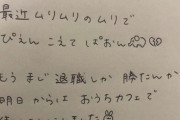 最近 ムリムリのムリで
ぴえん こえて ぱおん
もう まじ 退職しか 勝たんから
明日からは おうちカフェで